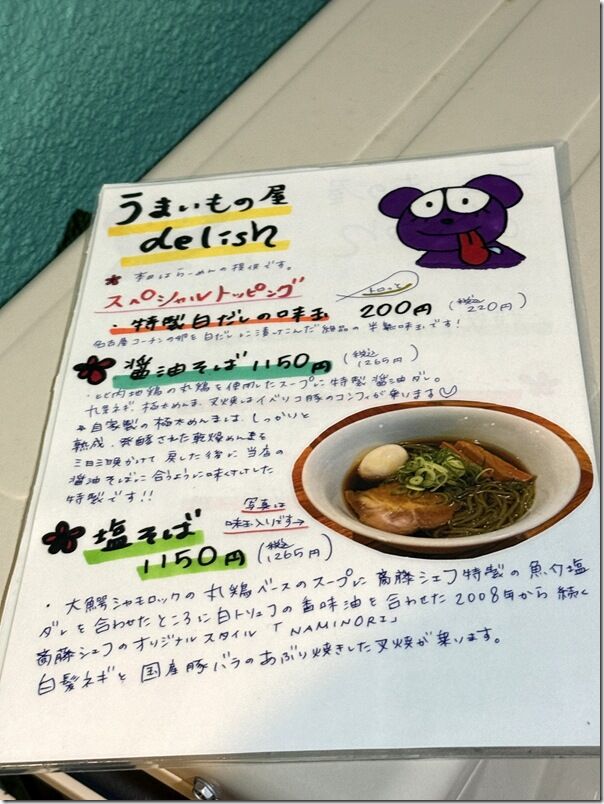 うまいもの屋
delish
* 本日はらーめんの提供です。
スペシャルトッピング
トロッと
・特製白だしの味玉 200円 (税込 220円)
名古屋コーチンの卵を白だしに漬けこんだ絶品の半熟味玉です!
醤油そば 1150円 (税込 1265円)
・比内地鶏の丸鶏を使用したスープに特製醤油ダレ。
九条ネギ、極太めんま、叉焼はイベリコ豚のコンフィが乗ります♡
* 自家製の極太めんまは、しっかりと
熟成、発酵された乾燥めんまを
三日三晩かけて戻した後に当店の
醤油そばに合うように味つけした
特製です!!
写真は
味玉入りです→
塩そば
1150円 (税込 1265円)
・大鰐シャモロックの丸鶏ベースのスープに斎藤シェフ特製の魚介塩
ダレを合わせたところに白トリュフの香味油を合わせた2008年から続く
斎藤シェフのオリジナルスタイル「NAMINORI」
白髪ネギと国産豚バラのあぶり焼きした叉焼が乗ります。